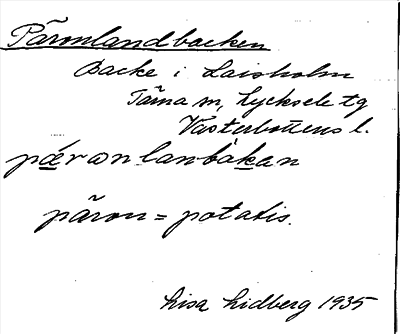 Päronlandbacken
Backe i Laisholm
Tärna sn, Lycksele tg
Västerbottens l.
pǽronlanbàkan
päron = potatis.
Lisa Lidberg 1935